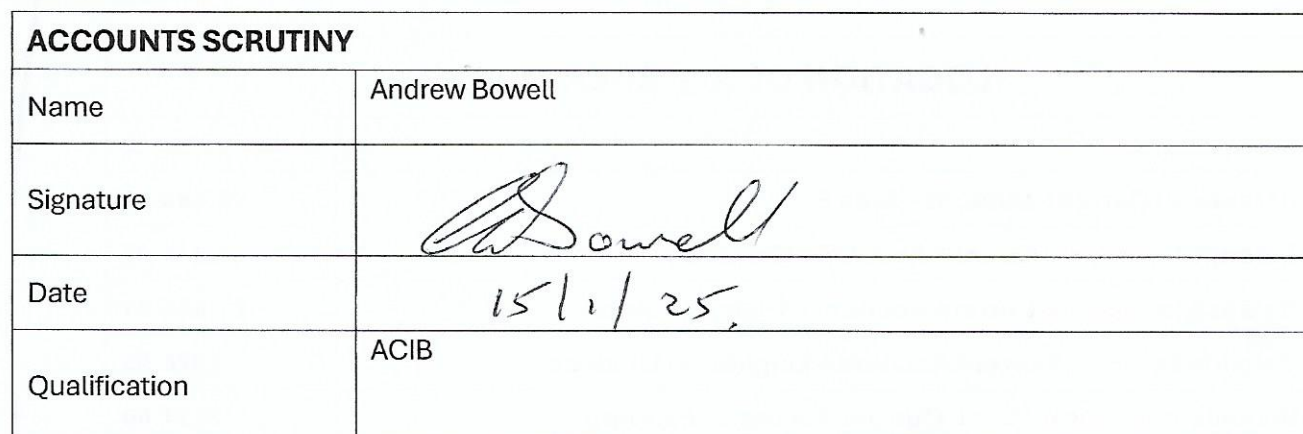 ACCOUNTS SCRUTINY
Name
Andrew Bowell
Signature
ABowell
Date
15/1/25.
Qualification
ACIB